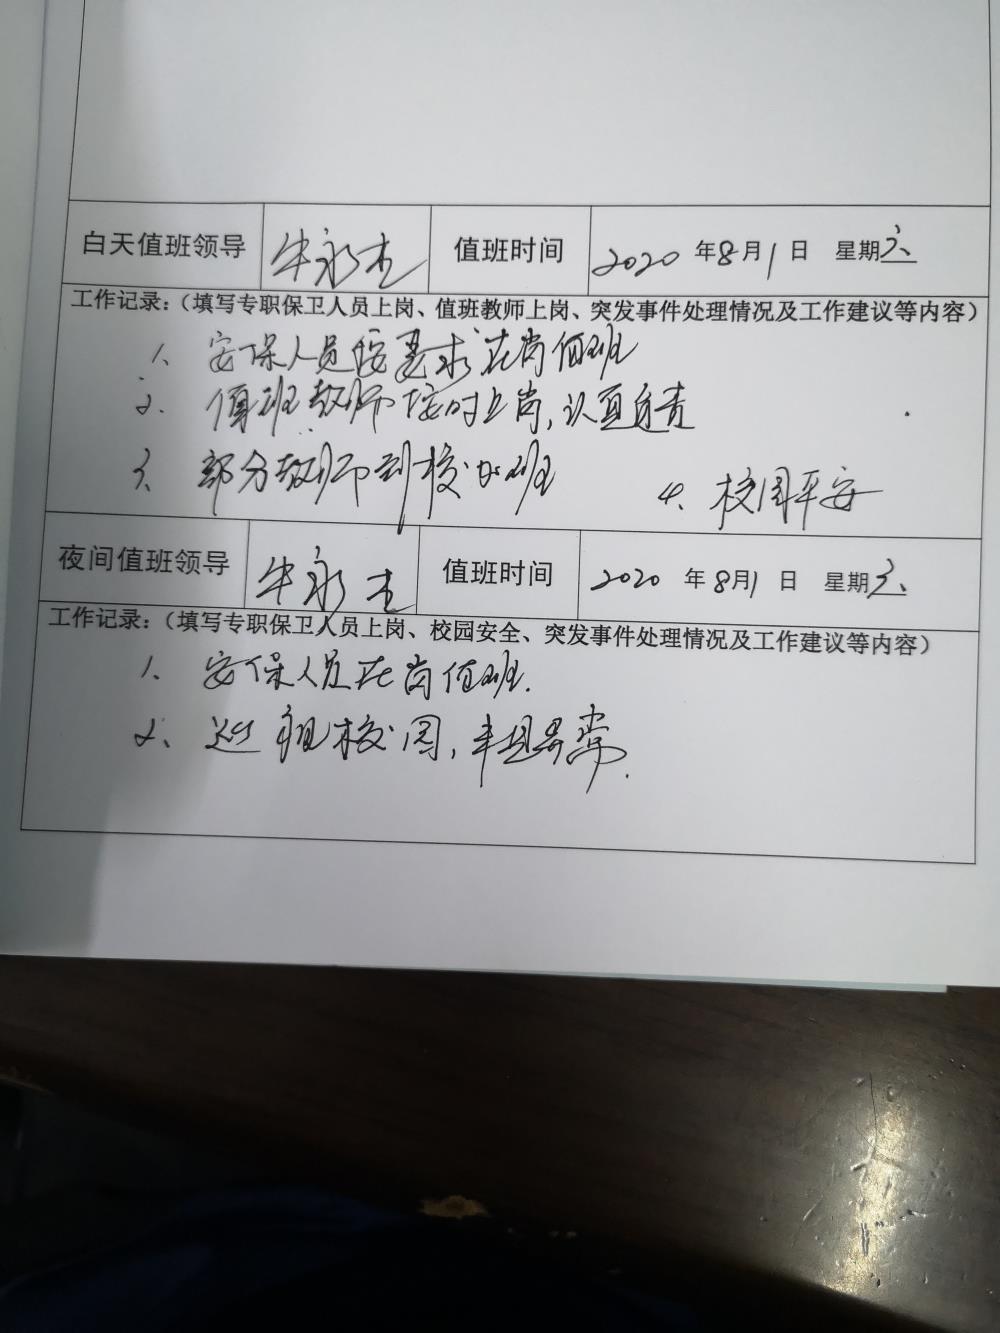 白天值班领导 牛永杰 值班时间 2020 年8月1日 星期六
工作记录：（填写专职保卫人员上岗、值班教师上岗、突发事件处理情况及工作建议等内容）
1、安保人员按要求在岗值班
2、值班教师按时上岗，认真负责
3、部分教师到校加班 4、校园平安
夜间值班领导 牛永杰 值班时间 2020 年8月1日 星期六
工作记录：（填写专职保卫人员上岗、校园安全、突发事件处理情况及工作建议等内容）
1、安保人员在岗值班.
2、巡视校园，未见异常.